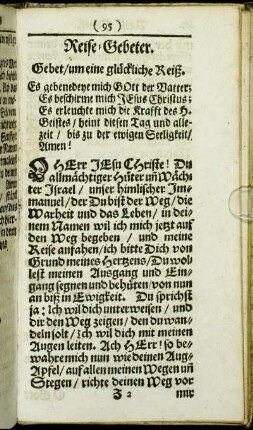 (95)
Reise-Gebeter.
Gebet/um eine glückliche Reiß.
Es gebenedeye mich GOtt der Vatter:
Es beschirme mich JEsus Christus:
Es erleuchte mich die Krafft des H.
Geistes / heint diesen Tag und alle-
zeit / bis zu der ewigen Seeligkeit/
Amen!
O HErr JEsu Christe! Du
allmächtiger Hüter uñ Wäch-
ter Israel / unser himlischer Im-
manuel/ der Du bist der Weg/ die
Warheit und das Leben/ in dei-
nem Namen wil ich mich jetzt auf
den Weg begeben / und meine
Reise anfahen/ ich bitte Dich von
Grund meines Hertzens/ Du wol-
lest meinen Ausgang und Ein-
gang segnen und behüten/ von nun
an biß in Ewigkeit. Du sprichst
ja: Ich wil dich unterweisen / und
dir den Weg zeigen/ den du wan-
deln solt / Ich wil dich mit meinen
Augen leiten. Ach HErr! so be-
wahre mich nun wie deinen Aug-
Apfel/ auf allen meinen Wegen uñ
Stegen/ richte deinen Weg vor
J 2
mir